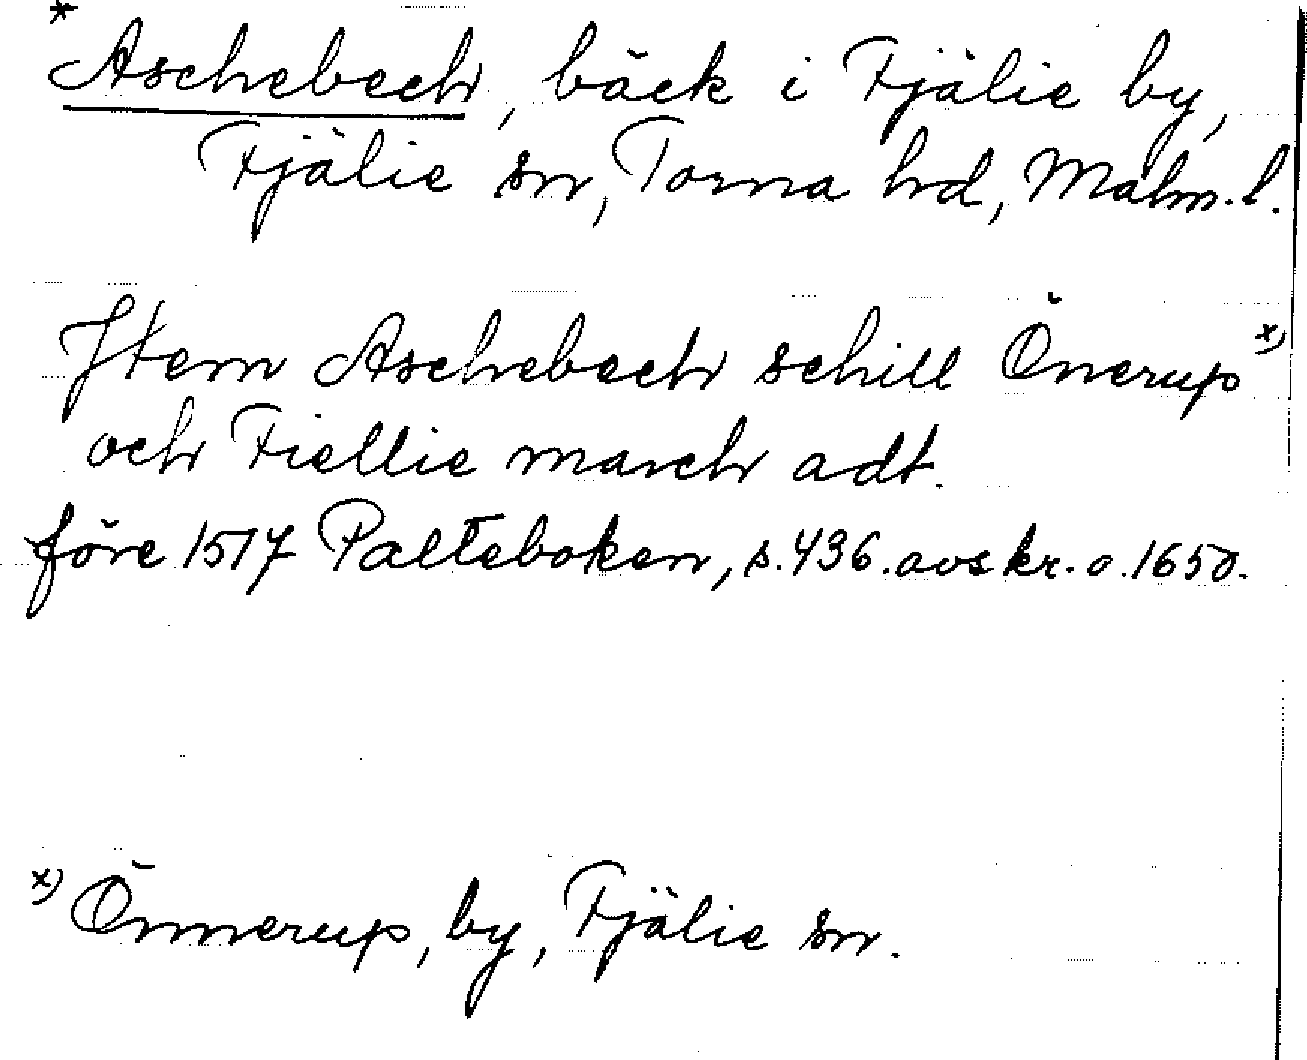 * Aschebech, bäck i Fjälie by,
Fjälie sn, Torna hd, Malm. l.
Item Aschebech schill Önerup x)
och Fiellie march adt.
före 1517 Palteboken, s. 436. avskr. o. 1650.
x) Önnerup, by, Fjälie sn.